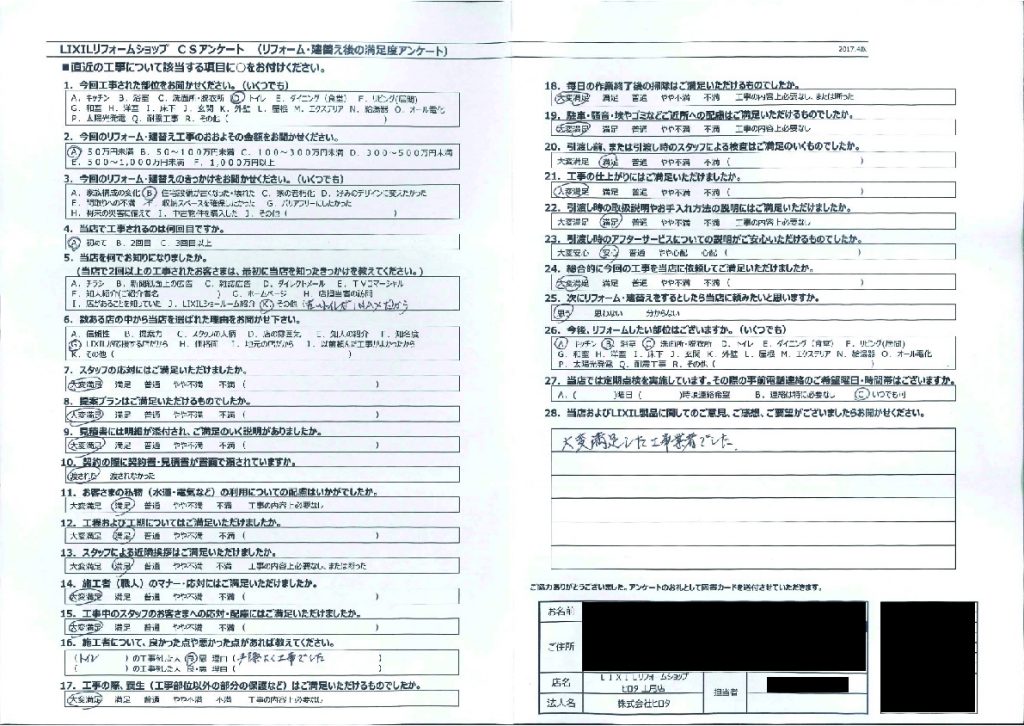 LIXILリフォームショップ CSアンケート (リフォーム・建替え後の満足度アンケート)
2017.4版
■直近の工事について該当する項目に○をお付けください。
1. 今回工事された部位をお聞かせください。(いくつでも)
A. キッチン B. 浴室 C. 洗面所・脱衣所 D. トイレ E. ダイニング (食堂) F. リビング(居間)
G. 和室 H. 洋室 I. 床下 J. 玄関 K. 外壁 L. 屋根 M. エクステリア N. 給湯器 O. オール電化
P. 太陽光発電 Q. 耐震工事 R. その他 ( )
2. 今回のリフォーム・建替え工事のおおよその金額をお聞かせください。
A. 50万円未満 B. 50~100万円未満 C. 100~300万円未満 D. 300~500万円未満
E. 500~1,000万円未満 F. 1,000万円以上
3. 今回のリフォーム・建替えのきっかけをお聞かせください。(いくつでも)
A. 家族構成の変化 B. 住宅設備が古くなった・壊れた C. 家の老朽化 D. 好みのデザインに変えたかった
E. 間取りへの不満 F. 収納スペースを確保したかった G. バリアフリーにしたかった
H. 将来の災害に備えて I. 中古物件を購入した J. その他 ( )
4. 当店で工事されるのは何回目ですか。
A. 初めて B. 2回目 C. 3回目以上
5. 当店を何でお知りになりましたか。
(当店で2回以上の工事されたお客さまは、最初に当店を知ったきっかけを教えてください。)
A. チラシ B. 新聞紙面上の広告 C. 雑誌広告 D. ダイレクトメール E. TVコマーシャル
F. 知人紹介(ご紹介者名 ) G. ホームページ H. 店担当者の訪問
I. 店があることを知っていた J. LIXILショールーム紹介 K. その他 (
6. 数ある店の中から当店を選ばれた理由をお聞かせ下さい。
A. 信頼性 B. 提案力 C. スタッフの人柄 D. 店の雰囲気 E. 知人の紹介 F. 知名度
G. LIXILが応援する店だから H. 価格面 I. 地元の店だから J. 以前頼んだ工事が良かったから
K. その他 ( )
7. スタッフの応対にはご満足いただけましたか。
大変満足 満足 普通 やや不満 不満 ( )
8. 提案プランはご満足いただけるものでしたか。
大変満足 満足 普通 やや不満 不満 ( )
9. 見積書には明細が添付され、ご満足のいく説明がありましたか。
大変満足 満足 普通 やや不満 不満 ( )
10. 契約の際に契約書・見積書が書面で渡されていますか。
渡された 渡されなかった
11. お客さまの私物 (水道・電気など) の利用についての配慮はいかがでしたか。
大変満足 満足 普通 やや不満 不満 工事の内容上必要なし
12. 工程および工期についてはご満足いただけましたか。
大変満足 満足 普通 やや不満 不満 ( )
13. スタッフによる近隣挨拶はご満足いただけましたか。
大変満足 満足 普通 やや不満 不満 工事の内容上必要なし、または断った
14. 施工者 (職人) のマナー・応対にはご満足いただけましたか。
大変満足 満足 普通 やや不満 不満 ( )
15. 工事中のスタッフのお客さまへの応対・配慮にはご満足いただけましたか。
大変満足 満足 普通 やや不満 不満 ( )
16. 施工者について、良かった点や悪かった点があれば教えてください。
(トイレ ) の工事をした人 良・悪 理由 (手際よく工事でした )
( ) の工事をした人 良・悪 理由 ( )
17. 工事の際、養生 (工事部位以外の部分の保護など) はご満足いただけるものでしたか。
大変満足 満足 普通 やや不満 不満 工事の内容上必要なし
18. 毎日の作業終了後の掃除はご満足いただけるものでしたか。
大変満足 満足 普通 やや不満 不満 工事の内容上必要なし、または断った
19. 駐車・騒音・埃やゴミなどご近所への配慮はご満足いただけるものでしたか。
大変満足 満足 普通 やや不満 不満 工事の内容上必要なし
20. 引渡し前、または引渡し時のスタッフによる検査はご満足のいくものでしたか。
大変満足 満足 普通 やや不満 不満 ( )
21. 工事の仕上がりにはご満足いただけましたか。
大変満足 満足 普通 やや不満 不満 ( )
22. 引渡し時の取扱説明やお手入れ方法の説明にはご満足いただけましたか。
大変満足 満足 普通 やや不満 不満 工事の内容上必要なし
23. 引渡し時のアフターサービスについての説明がご安心いただけるものでしたか。
大変安心 安心 普通 やや心配 心配 ( )
24. 総合的に今回の工事を当店に依頼してご満足いただけましたか。
大変満足 満足 普通 やや不満 不満 ( )
25. 次にリフォーム・建替えをするとしたら当店に頼みたいと思いますか。
思う 思わない 分からない
26. 今後、リフォームしたい部位はございますか。(いくつでも)
A. キッチン B. 浴室 C. 洗面所・脱衣所 D. トイレ E. ダイニング (食堂) F. リビング(居間)
G. 和室 H. 洋室 I. 床下 J. 玄関 K. 外壁 L. 屋根 M. エクステリア N. 給湯器 O. オール電化
P. 太陽光発電 Q. 耐震工事 R. その他( )
27. 当店では定期点検を実施しています。その際の事前電話連絡のご希望曜日・時間帯はございますか。
A. ( )曜日 ( )時頃連絡希望 B. 連絡は特に必要なし C. いつでも可
28. 当店およびLIXIL製品に関してのご意見、ご感想、ご要望がございましたらお聞かせください。
大変満足した工事業者でした。
ご協力ありがとうございました。アンケートのお礼として図書カードを送付させていただきます。
お名前
ご住所
店名 LIXILリフォームショップ ヒロタ 上戸店 担当者
法人名 株式会社ヒロタ